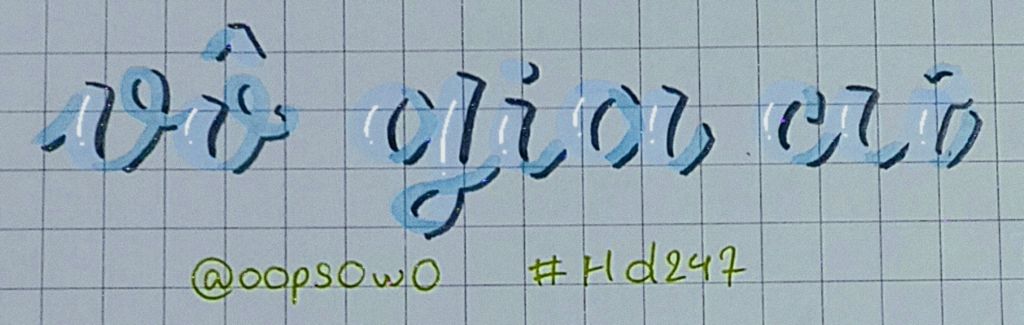 vô gia cư
@oopsOwO #Hd247